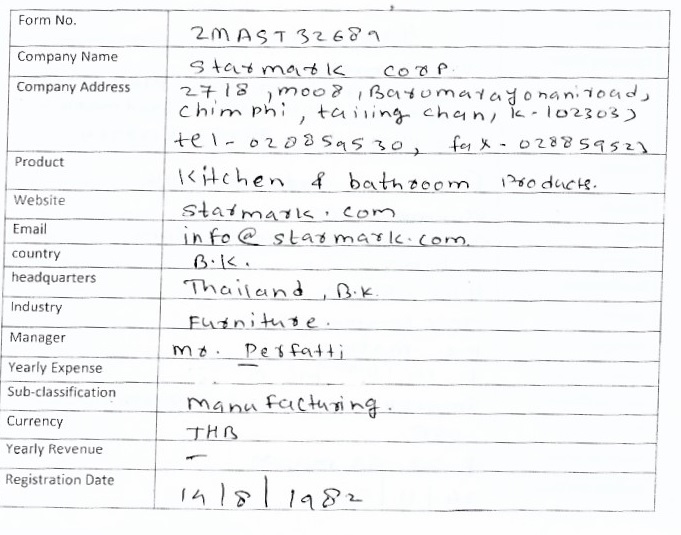 Form No. 2MAST32689
Company Name Starmark corp.
Company Address 2718, moo8, Baromarayonani road,
chimphi, tailing chan, k-102303)
tel-020859530, fax-028859523
Product Kitchen & bathroom Products.
Website starmark.com
Email info@starmark.com
country B.K.
headquarters Thailand, B.K.
Industry Furniture.
Manager Mr. Perfatti
Yearly Expense
Sub-classification Manufacturing.
Currency THB
Yearly Revenue -
Registration Date 14/8/1982